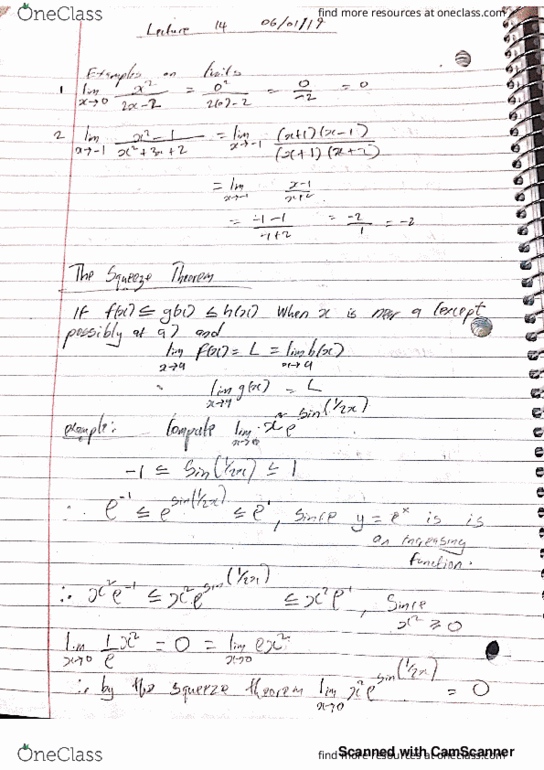 OneClass
find more resources at oneclass.com
Lecture 14 06/01/19
Examples on limits
1 lim x→0 x²/(2x-2) = 0²/(2(0)-2) = 0/-2 = 0
2 lim x→-1 (x²-1)/(x²+3x+2) = lim x→-1 (x+1)(x-1)/(x+1)(x+2)
= lim x→-1 (x-1)/(x+2)
= (-1-1)/(-1+2) = -2/1 = -2
The Squeeze Theorem
If f(x) ≤ g(x) ≤ h(x) when x is near a (except
possibly at a) and
lim x→a f(x) = L = lim x→a h(x)
lim x→a g(x) = L
example: Compute lim x→0 x²e^sin(1/2x)
-1 ≤ sin(1/2x) ≤ 1
∴ e^-1 ≤ e^sin(1/2x) ≤ e^1, since y = e^x is is
an increasing
function.
∴ x²e^-1 ≤ x²e^sin(1/2x) ≤ x²e^1, since
x² ≥ 0
lim x→0 1/e x² = 0 = lim x→0 ex²
∴ by the squeeze theorem lim x→0 x²e^sin(1/2x) = 0
Scanned with CamScanner
OneClass
find more resources at oneclass.com